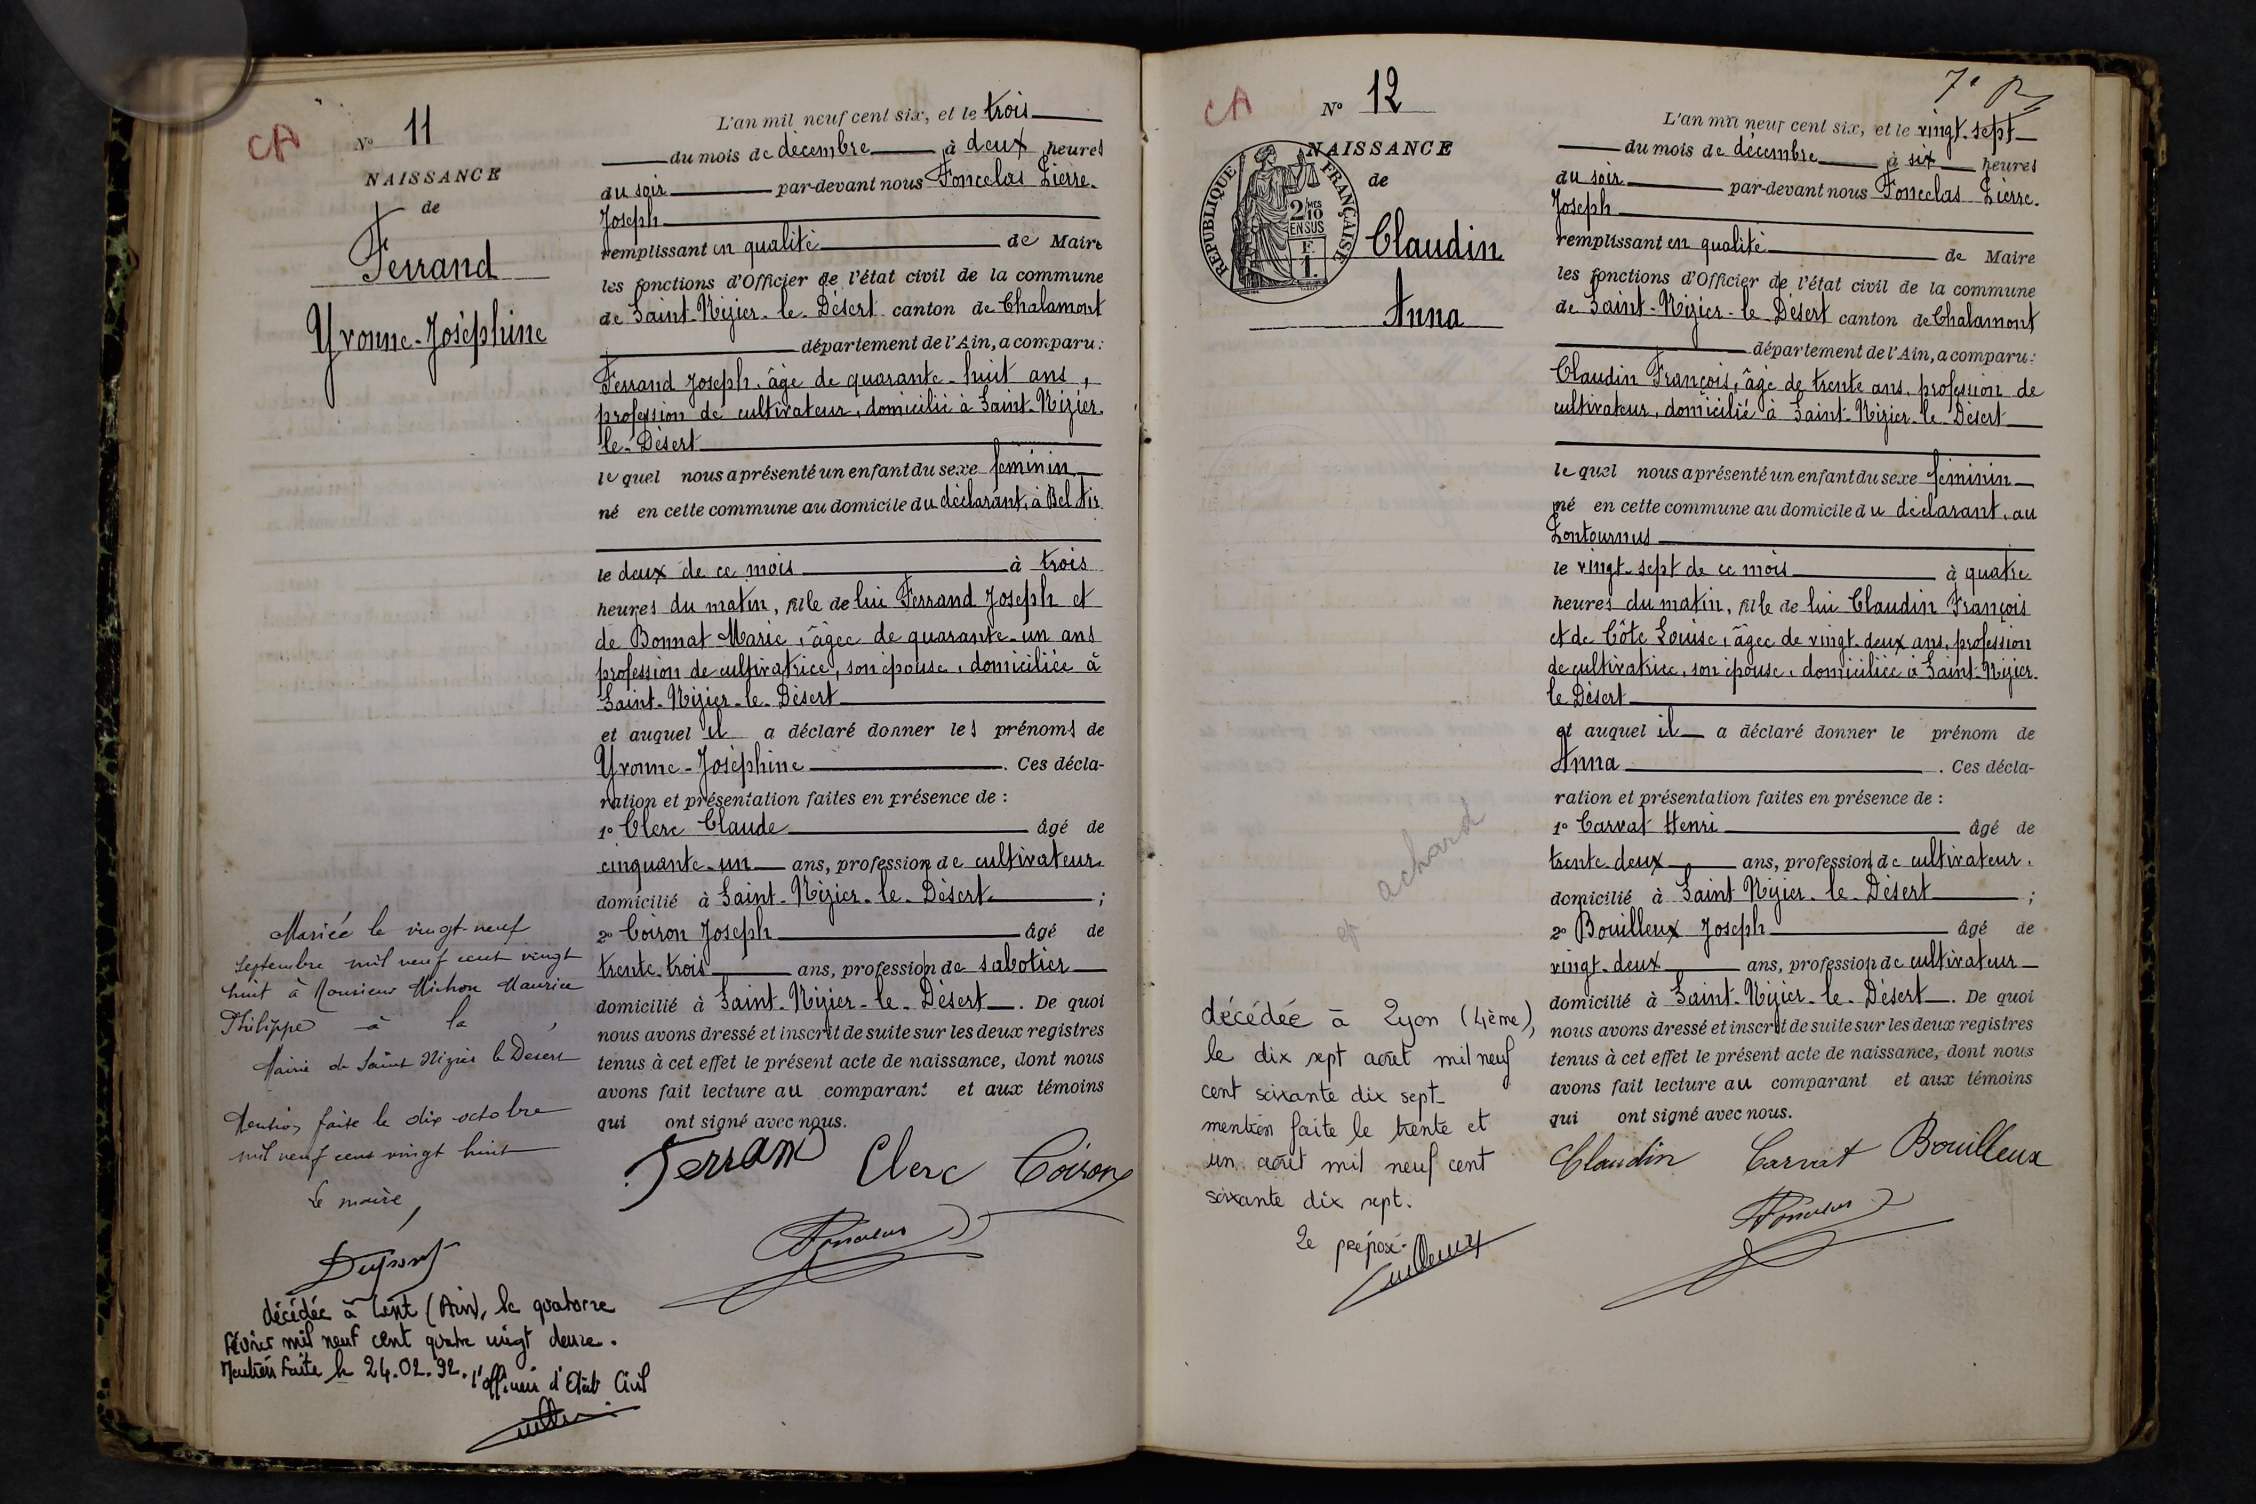 CA
N° 11
NAISSANCE
de
Ferrand
Yvonne-Joséphine
L'an mil neuf cent six, et le trois
du mois de décembre à deux heures
du soir par-devant nous Fonceclas Pierre.
Joseph
remplissant en qualité de Maire
les fonctions d'Officier de l'état civil de la commune
de Saint-Nizier-le-Désert canton de Chalamont
département de l'Ain, a comparu:
Ferrand Joseph, âgé de quarante-huit ans,
profession de cultivateur, domicilié à Saint-Nizier.
le-Désert
lequel nous a présenté un enfant du sexe feminin
né en cette commune au domicile du déclarant, à Bel Air
le deux de ce mois à trois
heures du matin, fille de lui Ferrand Joseph et
de Bonnat Marie, âgée de quarante-un ans
profession de cultivatrice, son épouse, domiciliée à
Saint-Nizier-le-Désert
et auquel il a déclaré donner les prénoms de
Yvonne-Joséphine. Ces décla-
ration et présentation faites en présence de :
1° Clerc Claude âgé de
cinquante-un ans, profession de cultivateur.
domicilié à Saint-Nizier-le-Désert ;
2° Coiron Joseph âgé de
trente-trois ans, profession de sabotier
domicilié à Saint-Nizier-le-Désert. De quoi
nous avons dressé et inscrit de suite sur les deux registres
tenus à cet effet le présent acte de naissance, dont nous
avons fait lecture au comparant et aux témoins
qui ont signé avec nous.
Ferrand Clerc Coiron
Mariée le vingt-neuf
septembre mil neuf cent vingt
huit à Monsieur Michon Maurice
Philippe à la
Mairie de Saint Nizier le Desert
Mention faite le dix octobre
mil neuf cent vingt huit
Le maire,
décédée à Lent (Ain), le quatorze
février mil neuf cent quatre vingt douze.
Mention faite le 24.02.92. l'officier d'Etat Civil
CA
N° 12
NAISSANCE
de
RÉPUBLIQUE FRANÇAISE
2 MES
10
EN SUS
F.
1.
Claudin
Anna
7e
L'an mil neuf cent six, et le vingt-sept
du mois de décembre à six heures
du soir par-devant nous Fonceclas Pierre.
Joseph
remplissant en qualité de Maire
les fonctions d'Officier de l'état civil de la commune
de Saint-Nizier-le Désert canton de Chalamont
département de l'Ain, a comparu:
Claudin François, âgé de trente ans, profession de
cultivateur, domicilié à Saint-Nizier-le-Désert
lequel nous a présenté un enfant du sexe féminin
né en cette commune au domicile du déclarant, au
Pontournus
le vingt-sept de ce mois à quatre
heures du matin, fille de lui Claudin François
et de Côte Louise, âgée de vingt-deux ans, profession
de cultivatrice, son épouse, domiciliée à Saint-Nizier.
le Désert
et auquel il a déclaré donner le prénom de
Anna. Ces décla-
ration et présentation faites en présence de :
1° Carvat Henri âgé de
trente deux ans, profession de cultivateur.
domicilié à Saint Nizier-le-Désert ;
2° Bouilleux Joseph âgé de
vingt-deux ans, profession de cultivateur
domicilié à Saint-Nizier-le-Désert. De quoi
nous avons dressé et inscrit de suite sur les deux registres
tenus à cet effet le présent acte de naissance, dont nous
avons fait lecture au comparant et aux témoins
qui ont signé avec nous.
Claudin Carvat Bouilleux
achard
décédée à Lyon (4ème),
le dix sept août mil neuf
cent soixante dix sept_
mention faite le trente et
un août mil neuf cent
soixante dix sept.
Le préposé.